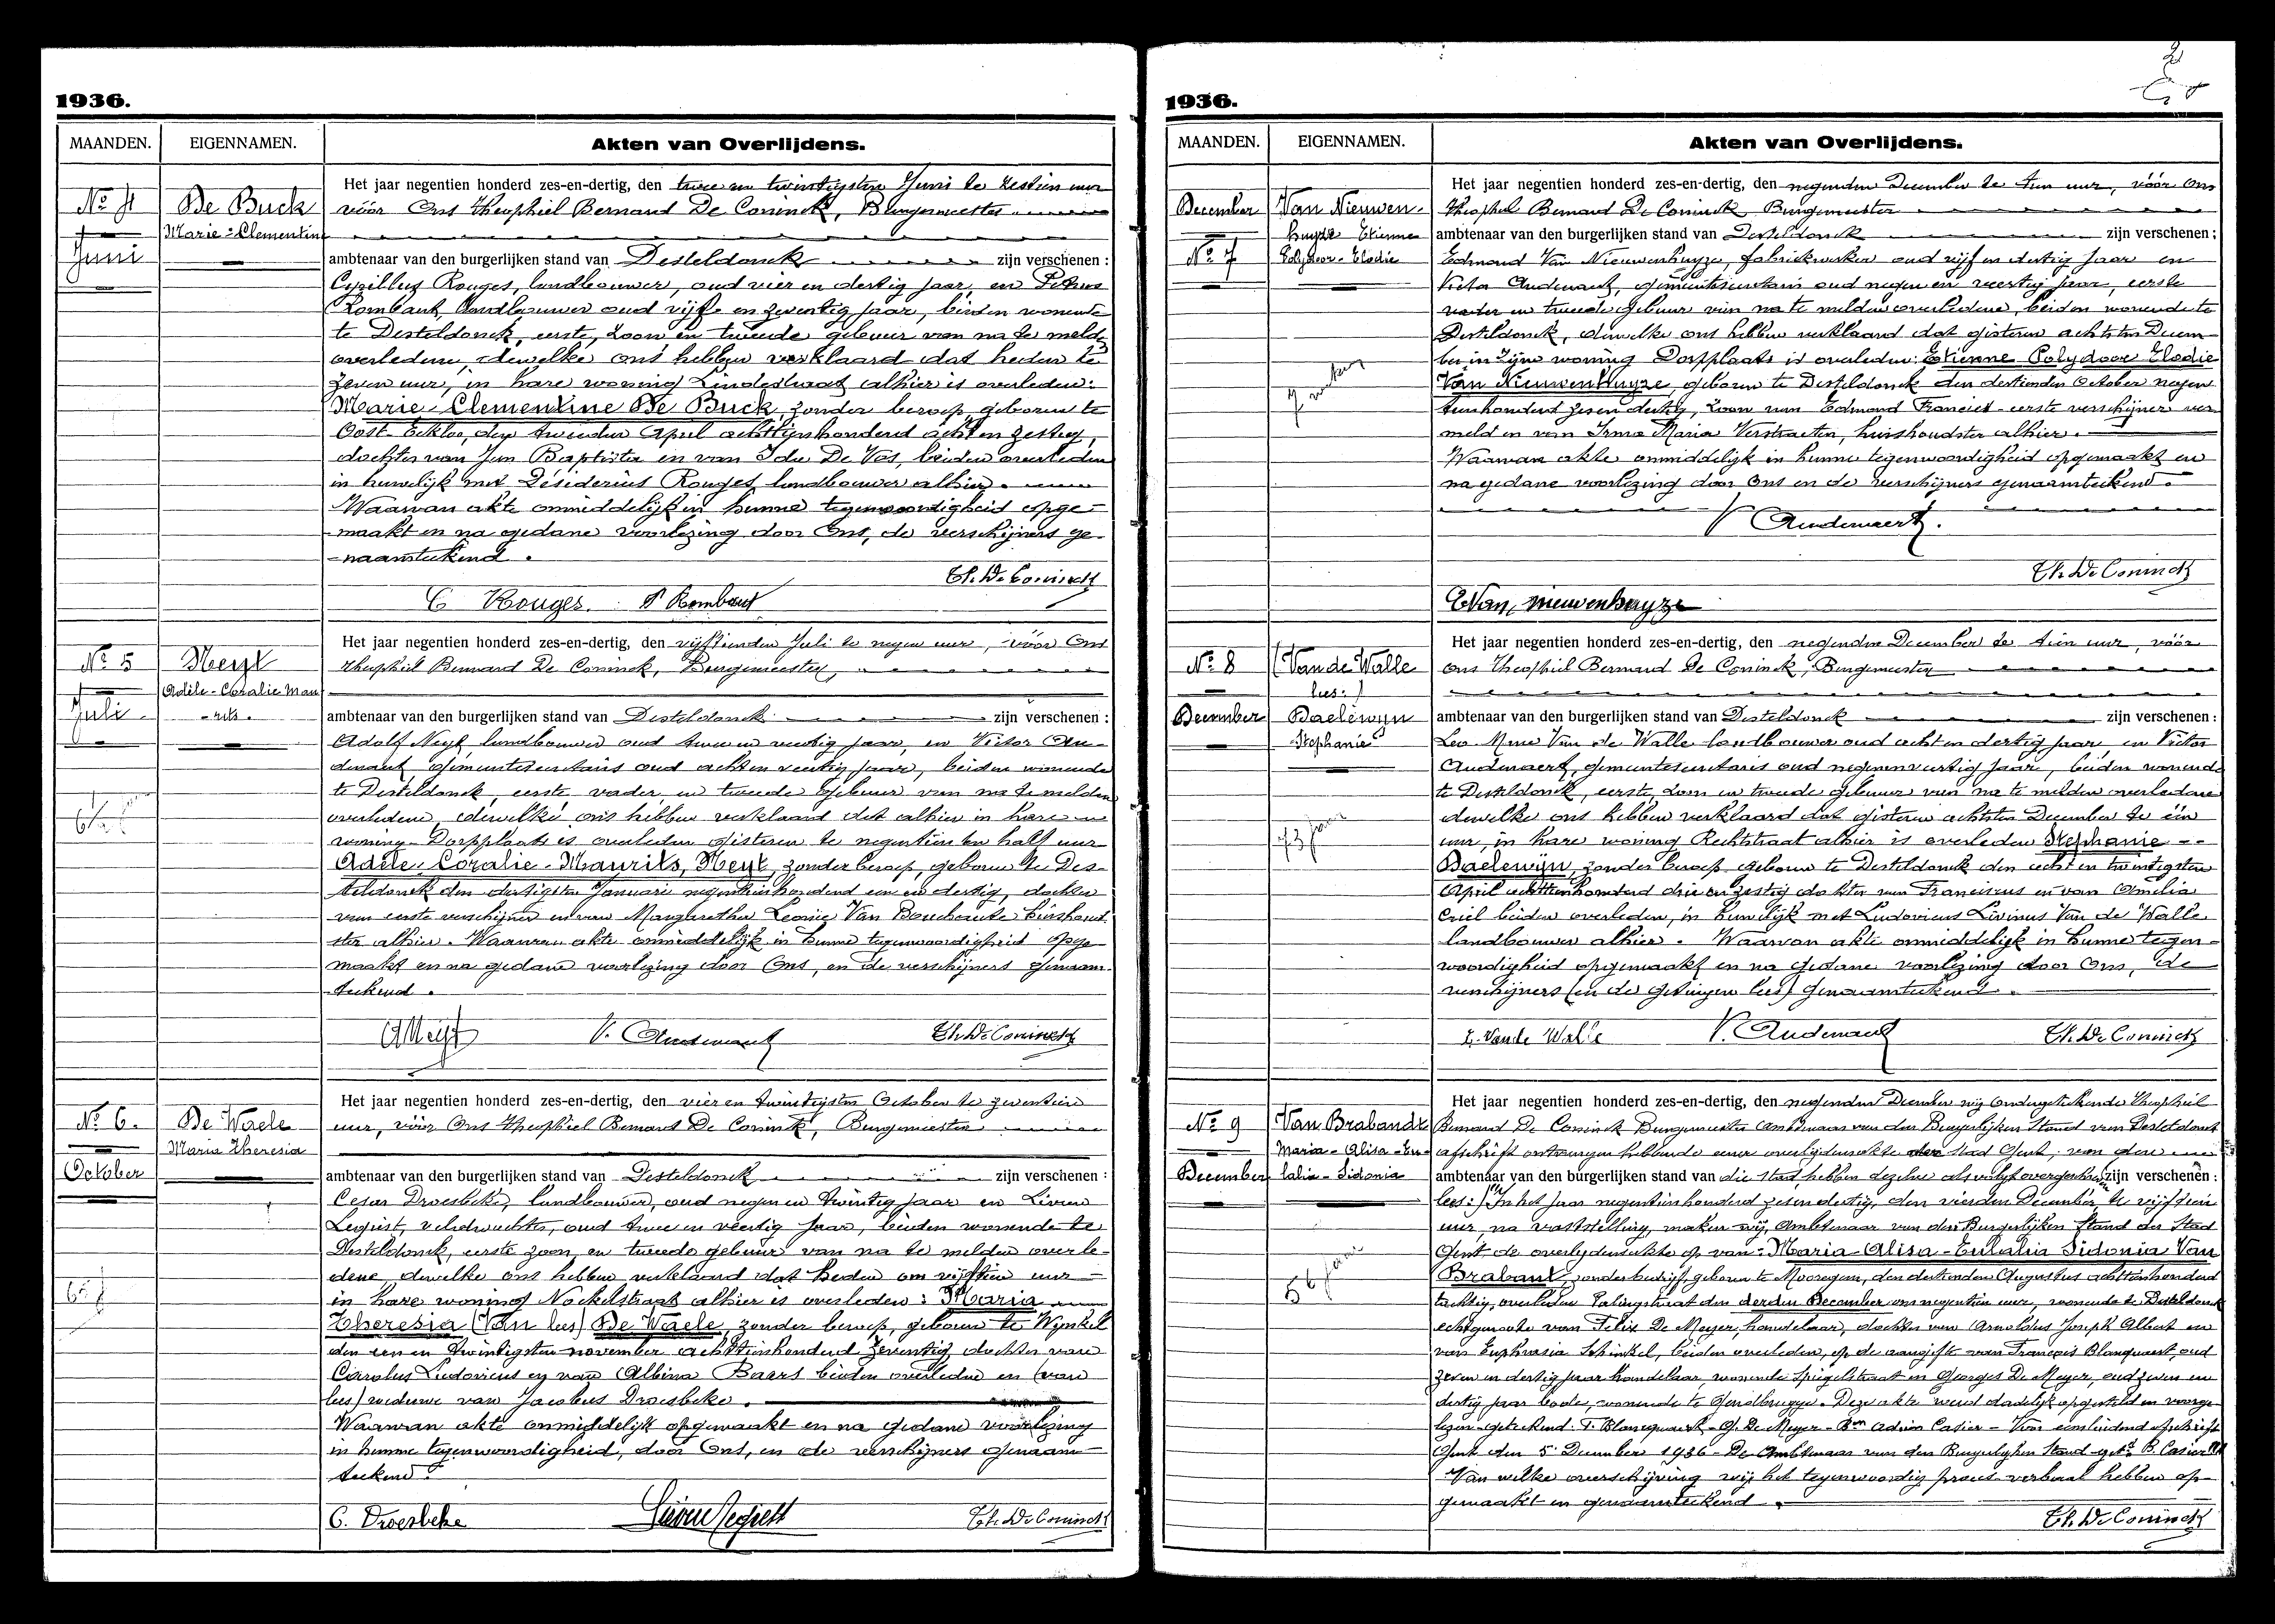 1936.
MAANDEN. EIGENNAMEN. Akten van Overlijdens.
Nº 4
Juni
De Buck
Marie-Clementine
Het jaar negentien honderd zes-en-dertig, den twee en twintigsten Juni te zestien uur
vóór Ons Theophiel Bernard De Coninck, Burgemeester
ambtenaar van den burgerlijken stand van Desteldonck zijn verschenen :
Cyrillus Rouges, landbouwer, oud vier en dertig jaar, en Petrus
Rombaut, landbouwer oud vijf en zeventig jaar, beiden wonende
te Desteldonck, eerste, zoon en tweede gebuur van na te melden
overledene, dewelke ons hebben verklaard dat heden te
zeven uur, in hare woning Lindestraat alhier is overleden:
Marie-Clementine De Buck, zonder beroep, geboren te
Oost-Eekloo, den tweeden April achttienhonderd acht en zestig,
dochter van Jan Baptista en van Ida De Vos, beiden overleden
in huwelijk met Désiderius Rouges landbouwer alhier.
Waarvan akte onmiddelijk in hunne tegenwoordigheid opge-
maakt en na gedane voorlezing door Ons, de verschijners ge-
naamteekend.
Th. De Coninck
C Rouges. P Rombaut
Nº 5
Juli
Neyt
Adèle-Coralie Mau
rits.
Het jaar negentien honderd zes-en-dertig, den vijftienden Juli te negen uur, vóór Ons
Theophiel Bernard De Coninck, Burgemeester,
ambtenaar van den burgerlijken stand van Desteldonck zijn verschenen :
Adolf Neyt landbouwer oud twee en veertig jaar, en Victor Au-
denaert gemeentesecretaris oud acht en veertig jaar, beiden wonende
te Desteldonck, eerste vader en tweede gebuur van na te melden
overledene, dewelke ons hebben verklaard dat alhier in hare
woning Dorpplaats is overleden gisteren te negentien en half uur
Adèle-Coralie-Maurits, Neyt, zonder beroep, geboren te Des-
teldonck den dertigsten Januari negentienhonderd een en dertig, dochter
van eerste verschijner en van Margaretha Leonie Van Bouchaute huishoud-
ster alhier. Waarvan akte onmiddelijk in hunne tegenwoordigheid opge
maakt en na gedane voorlezing door Ons, en de verschijners genaam-
teekend.
A Neyt V. Audenaert Th. De Coninck
Nº 6.
October
De Waele
Maria Theresia
Het jaar negentien honderd zes-en-dertig, den vier en twintigsten October te zeventien
uur, vóór Ons Theophiel Bernard De Coninck, Burgemeester
ambtenaar van den burgerlijken stand van Desteldonck zijn verschenen :
Cesar Droesbeke, landbouwer, oud negen en twintig jaar en Lieven
Legiest, veldwachter, oud twee en veertig jaar, beiden wonende te
Desteldonck, eerste zoon, en tweede gebuur van na te melden overle-
dene, dewelke ons hebben verklaard dat heden om vijftien uur
in hare woning Nockelstraat alhier is overleden: Maria
Theresia (Van lees) De Waele, zonder beroep, geboren te Wynkel
den een en twintigsten november achttienhonderd zeventig, dochter van
Carolus Ludovicus en van Albina Baers beiden overleden en (van
lees) weduwe van Jacobus Droesbeke.
Waarvan akte onmiddelijk opgemaakt en na gedane voorlezing
in hunne tegenwoordigheid, door Ons, en de verschijners genaam-
teekend.
C. Droesbeke Lieven Legiest Th. De Coninck
1936.
MAANDEN. EIGENNAMEN. Akten van Overlijdens.
December
Nº 7
Van Nieuwen-
huyze Etienne
Polydoor-Elodie
Het jaar negentien honderd zes-en-dertig, den negenden December te tien uur, vóór Ons
Theophiel Bernard De Coninck Burgemeester
ambtenaar van den burgerlijken stand van Desteldonck zijn verschenen ;
Edmond Van Nieuwenhuyze, fabriekwerker oud vijf en dertig jaar en
Victor Audenaert, gemeentesecretaris oud negen en veertig jaar, eerste
vader en tweede gebuur van na te melden overledene, beiden wonende te
Desteldonck, dewelke ons hebben verklaard dat gisteren achtsten Decem-
ber in zijne woning Dorpplaats is overleden: Etienne Polydoor Elodie
Van Nieuwenhuyze, geboren te Desteldonck den dertienden October negen
tienhonderd zes en dertig, zoon van Edmond Franciet eerste verschijner ver
meld en van Irma Maria Verstraeten, huishoudster alhier.
Waarvan akte onmiddelijk in hunne tegenwoordigheid opgemaakt en
na gedane voorlezing door Ons en de verschijners genaamteekend.
V Audenaert.
Th. De Coninck
E Van nieuwenhuyze
Nº 8
December
(Van de Walle
lees:)
Daelewyn
Stephanie
73 jaar
Het jaar negentien honderd zes-en-dertig, den negenden December te tien uur, vóór
ons Theophiel Bernard De Coninck, Burgemeester
ambtenaar van den burgerlijken stand van Desteldonck zijn verschenen :
Leo Van de Walle landbouwer oud acht en dertig jaar, en Victor
Audenaert, gemeentesecretaris oud negen en veertig jaar, beiden wonende
te Desteldonck, eerste, zoon en tweede gebuur van na te melden overledene
dewelke ons hebben verklaard dat gisteren achtsten December te één
uur, in hare woning Rechtstraat alhier is overleden Stephanie
Daelewijn, zonder beroep geboren te Desteldonck den acht en twintigsten
April achttienhonderd drie en zestig dochter van Franciscus en van Amelia
Criel beiden overleden, in huwelijk met Ludovicus Livinus Van de Walle
landbouwer alhier. Waarvan akte onmiddelijk in hunne tegen-
woordigheid opgemaakt en na gedane voorlezing door Ons, de
verschijners (en de getuigen lees) genaamteekend.
L. Van de Walle V. Audenaert Th. De Coninck
Nº 9
December
Van Brabandt
Maria-Alisa-Eu-
lalia-Sidonia
56 jaar
Het jaar negentien honderd zes-en-dertig, den negenden December wij ondergeteekende Theophiel
Bernard De Coninck Burgemeester Ambtenaar van den Burgerlijken Stand van Desteldonck
afschrift ontvangen hebbende eener overlijdensakte der stad Gent, van den
ambtenaar van den burgerlijken stand van die stad, hebben dezelve als volgt overgeschreven zijn verschenen :
lees:) In het jaar negentienhonderd zes en dertig, den vierden December, te vijftien
uur, na vaststelling, maken wij, Ambtenaar van den Burgerlijken Stand der Stad
Gent de overlijdensakte op van: Maria-Alisa-Eulalia Sidonia Van
Brabant, zonder bedrijf, geboren te Mooregem, den dertienden Augustus achttienhonderd
tachtig, overleden Palingstraat den derden December om negentien uur, wonende te Desteldonck
echtgenoote van Felix De Meyer, handelaar, dochter van Arnoldus Joseph Albert en
van Euphrasia Schinkel, beiden overleden, op de aangifte van François Blanquaert, oud
zeven en dertig jaar handelaar, wonende Spiegelstraat en Georges De Meyer, oud zeven en
dertig jaar bode, wonende te Gendbrugge. Deze akte werd dadelijk opgesteld en voorge-
lezen geteekend: F. Blanquaert-G. De Meyer-Bon Adrien Casier - Voor eensluidend afschrift
Gent den 5 December 1936 - De Ambtenaar van den Burgerlijken Stand get. B. Casier
Van welke overschrijving wij het tegenwoordig proces-verbaal hebben op-
gemaakt en genaamteekend.
Th. De Coninck